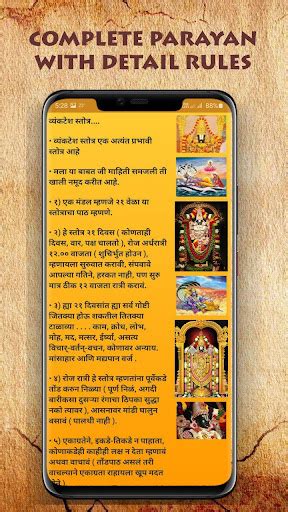 COMPLETE PARAYAN
WITH DETAIL RULES
5:28
89%
व्यंकटेश स्तोत्र....
• व्यंकटेश स्तोत्र एक अत्यंत प्रभावी
स्तोत्र आहे
• मला या बाबत जी माहिती समजली ती
खाली नमूद करीत आहे.
• १) एक मंडल म्हणजे २१ वेळा या
स्त्रोताचा पाठ म्हणणे.
• २) हे स्तोत्र २१ दिवस ( कोणताही
दिवस, वार, पक्ष चालतो ), रोज अर्धरात्री
१२.०० वाजता ( शुचिर्भुत होउन ),
म्हणायला सुरुवात करावी, संपवावे
आपल्या गतिने, हरकत नाही, पण सुरु
मात्र ठीक १२ वाजता रात्री करावं.
• ३) ह्या २१ दिवसांत ह्या सर्व गोष्टी
जितक्या होऊ शकतील तितक्या
टाळाव्या . . . . काम, क्रोध, लोभ,
मोह, मद, मत्सर, ईर्ष्या, असत्य
विचार-वर्तन-वचन, कोणावर अन्याय.
मांसाहार आणि मद्यपान वर्ज .
• ४) रोज रात्री हे स्तोत्र म्हणतांना पूर्वेकडे
तोंड करुन निळ्या ( पूर्ण निळं, अगदी
बारीकसा दुसऱ्या रंगाचा ठिपका सुद्धा
नको त्यावर ), आसनावर मांडी घालुन
बसावं ( पालथी नाही ).
• ५) एकाग्रतेने, इकडे-तिकडे न पाहाता,
कोणाकडेही काहीही लक्ष न देता म्हणावं
अथवा वाचावं ( तोंडपाठ असलं तरी
वाचल्याने एकाग्रता राहायला खूप मदत